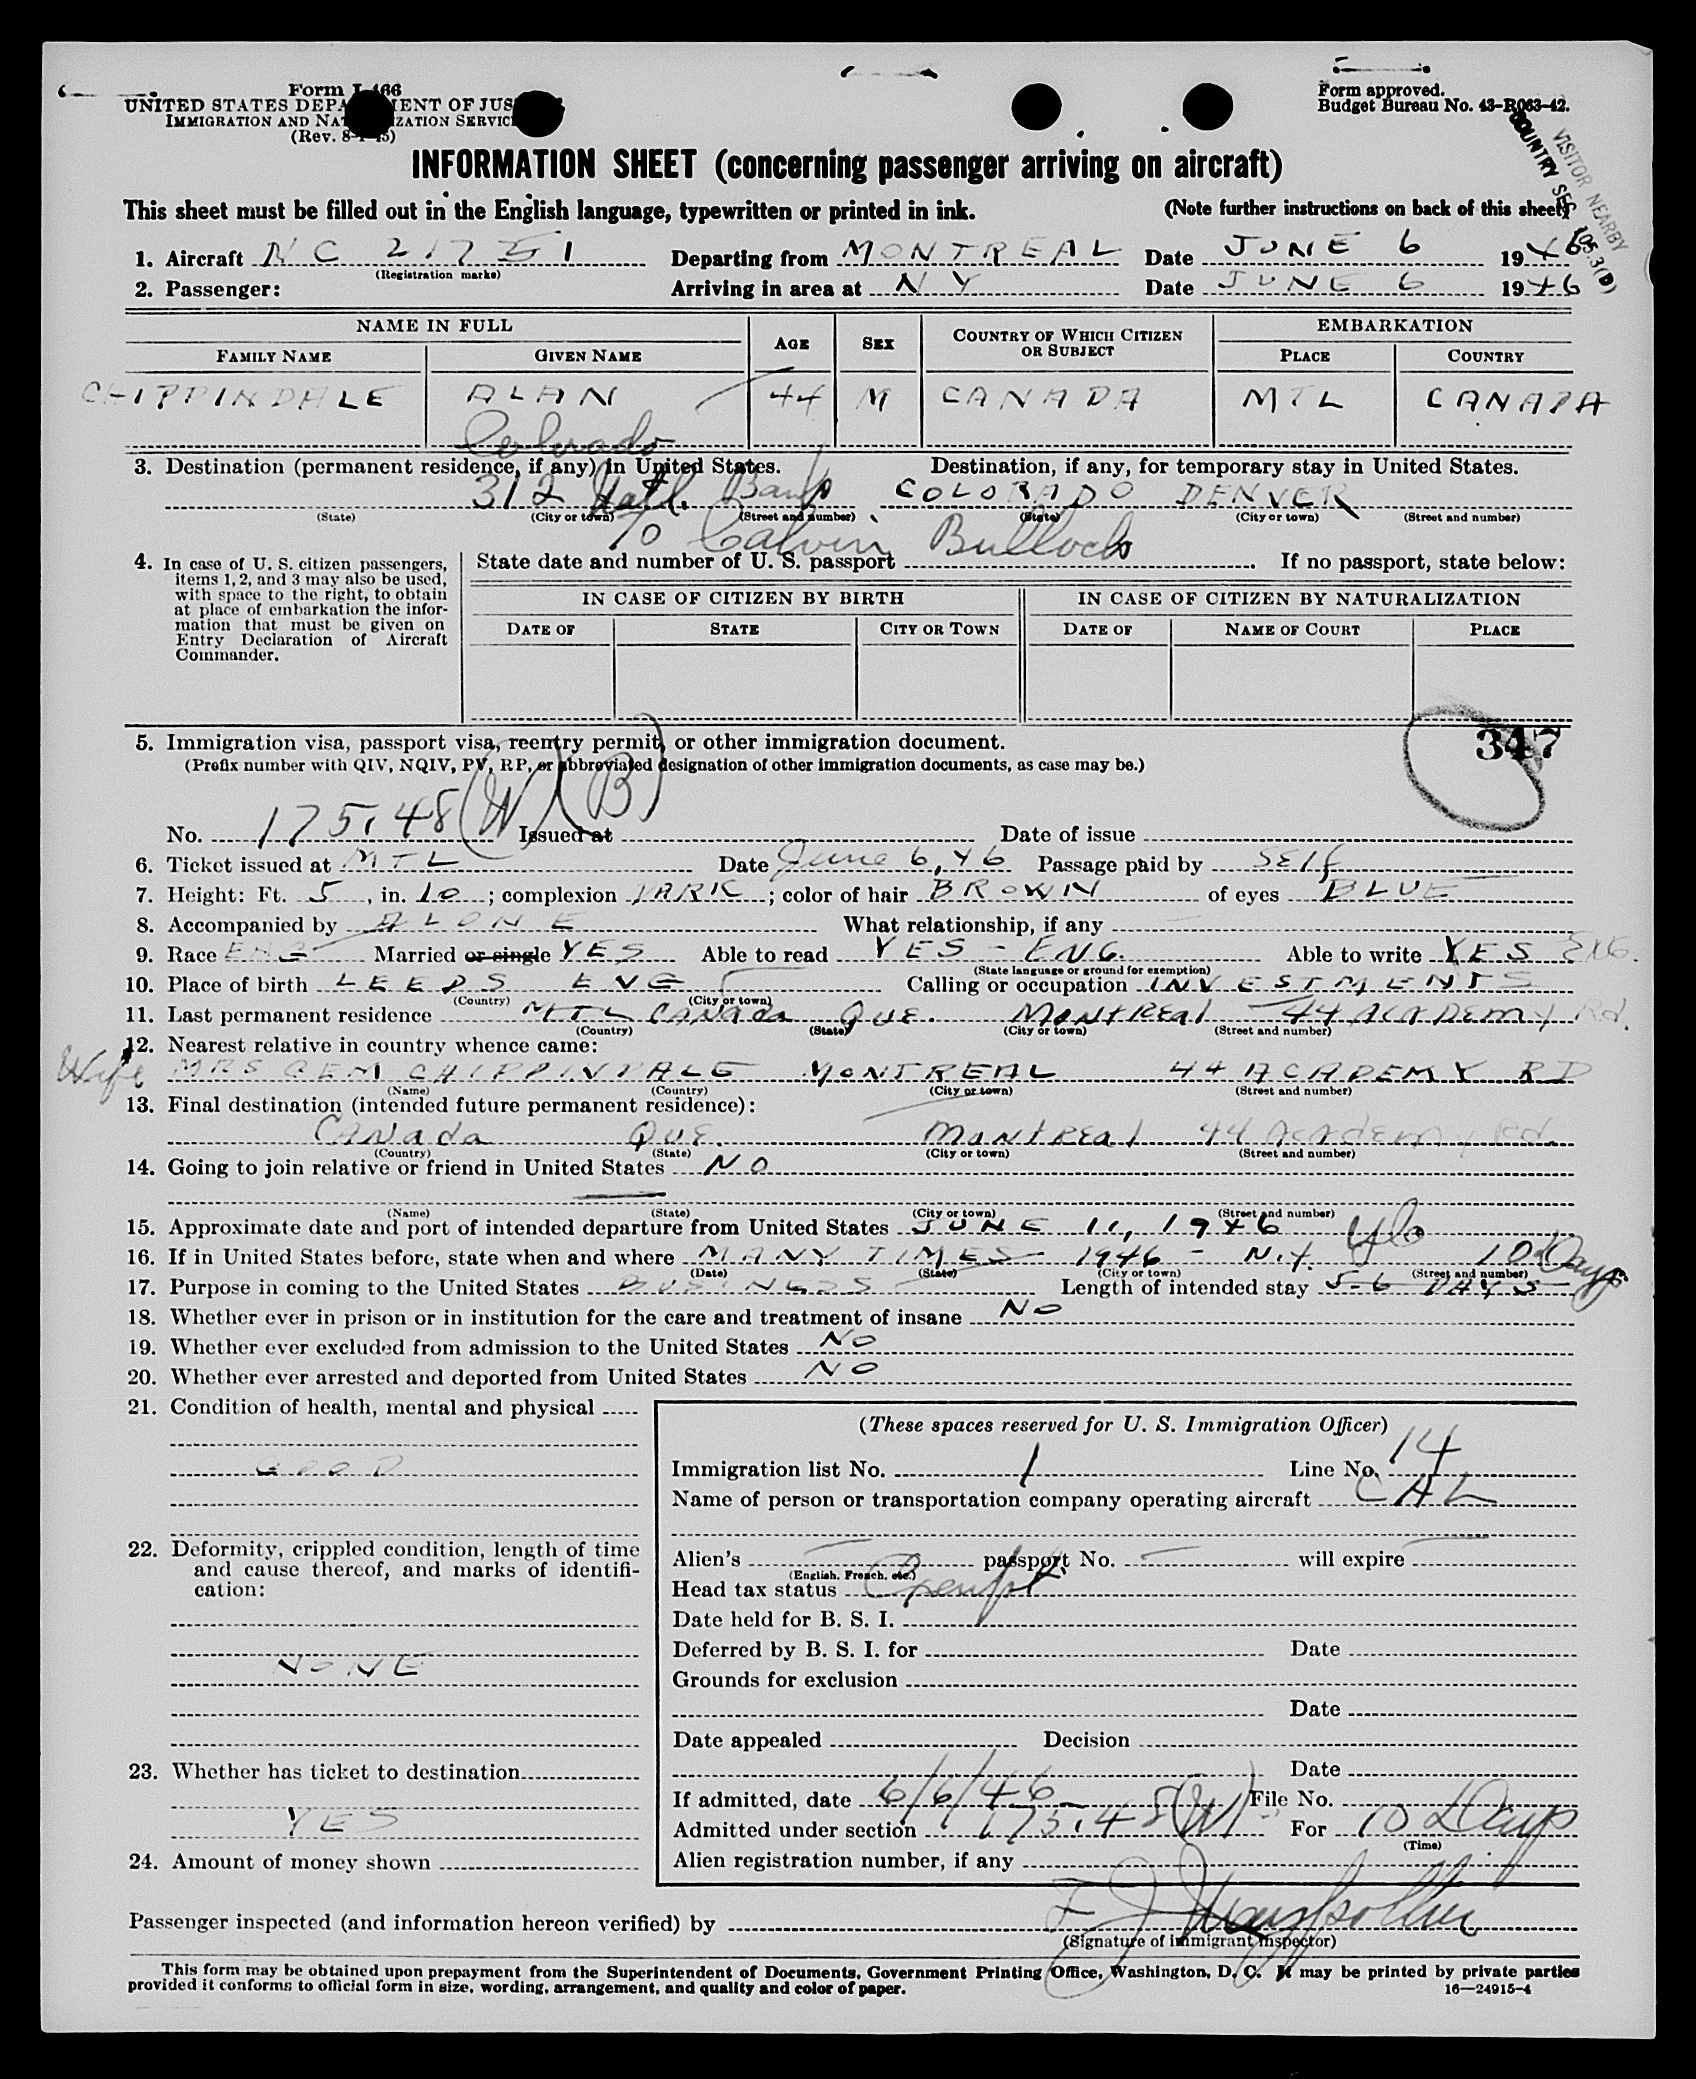 Form I-466
UNITED STATES DEPARTMENT OF JUSTICE
IMMIGRATION AND NATURALIZATION SERVICE
(Rev. 8-1-45)
Form approved.
Budget Bureau No. 43-R063-42.
VISITOR NEARBY
COUNTRY SEC 105.3(B)
INFORMATION SHEET (concerning passenger arriving on aircraft)
This sheet must be filled out in the English language, typewritten or printed in ink. (Note further instructions on back of this sheet)
1. Aircraft NC 21751 Departing from MONTREAL Date JUNE 6 1946
(Registration marks)
2. Passenger: Arriving in area at NY Date JUNE 6 1946
NAME IN FULL AGE SEX COUNTRY OF WHICH CITIZEN OR SUBJECT EMBARKATION
FAMILY NAME GIVEN NAME PLACE COUNTRY
CHIPPINDALE ALAN 44 M CANADA MTL CANADA
Colorado
3. Destination (permanent residence, if any) in United States. Destination, if any, for temporary stay in United States.
312 Natl. Bank COLORADO DENVER
(State) (City or town) (Street and number) (State) (City or town) (Street and number)
% Calvin Bullock
4. In case of U. S. citizen passengers, items 1, 2, and 3 may also be used, with space to the right, to obtain at place of embarkation the information that must be given on Entry Declaration of Aircraft Commander.
State date and number of U. S. passport . If no passport, state below:
IN CASE OF CITIZEN BY BIRTH IN CASE OF CITIZEN BY NATURALIZATION
DATE OF STATE CITY OR TOWN DATE OF NAME OF COURT PLACE
347
5. Immigration visa, passport visa, reentry permit, or other immigration document.
(Prefix number with QIV, NQIV, PV, RP, or abbreviated designation of other immigration documents, as case may be.)
No. 175.48 (W) (B) Issued at Date of issue
6. Ticket issued at MTL Date June 6, 46 Passage paid by SELF
7. Height: Ft. 5, in. 10; complexion DARK; color of hair BROWN of eyes BLUE
8. Accompanied by ALONE What relationship, if any
9. Race ENG Married or single YES Able to read YES - ENG. Able to write YES ENG.
(State language or ground for exemption)
10. Place of birth LEEDS ENG Calling or occupation INVESTMENTS
(Country) (City or town)
11. Last permanent residence MTL CANADA QUE. MONTREAL 44 ACADEMY Rd.
(Country) (State) (City or town) (Street and number)
12. Nearest relative in country whence came:
Wife MRS GEM CHIPPINDALE MONTREAL 44 ACADEMY RD
(Name) (Country) (City or town) (Street and number)
13. Final destination (intended future permanent residence):
CANADA QUE. MONTREAL 44 ACADEMY Rd.
(Country) (State) (City or town) (Street and number)
14. Going to join relative or friend in United States NO
(Name) (State) (City or town) (Street and number)
15. Approximate date and port of intended departure from United States JUNE 11, 1946
16. If in United States before, state when and where MANY TIMES - 1946 - N.Y. 10 Days
(Date) (State) (City or town) (Street and number)
17. Purpose in coming to the United States BUSINESS Length of intended stay 5-6 DAYS
18. Whether ever in prison or in institution for the care and treatment of insane NO
19. Whether ever excluded from admission to the United States NO
20. Whether ever arrested and deported from United States NO
21. Condition of health, mental and physical
GOOD
22. Deformity, crippled condition, length of time and cause thereof, and marks of identification:
NONE
23. Whether has ticket to destination
YES
24. Amount of money shown
(These spaces reserved for U. S. Immigration Officer)
Immigration list No. 1 Line No. 14
Name of person or transportation company operating aircraft CAL
Alien's passport No. will expire
(English, French, etc.)
Head tax status Exempt
Date held for B. S. I.
Deferred by B. S. I. for Date
Grounds for exclusion
Date
Date appealed Decision
Date
If admitted, date 6/6/46 File No.
Admitted under section 175.48(W) For 10 Days
(Time)
Alien registration number, if any
Passenger inspected (and information hereon verified) by
(Signature of immigrant inspector)
This form may be obtained upon prepayment from the Superintendent of Documents, Government Printing Office, Washington, D. C. It may be printed by private parties
provided it conforms to official form in size, wording, arrangement, and quality and color of paper. 16—24915-4